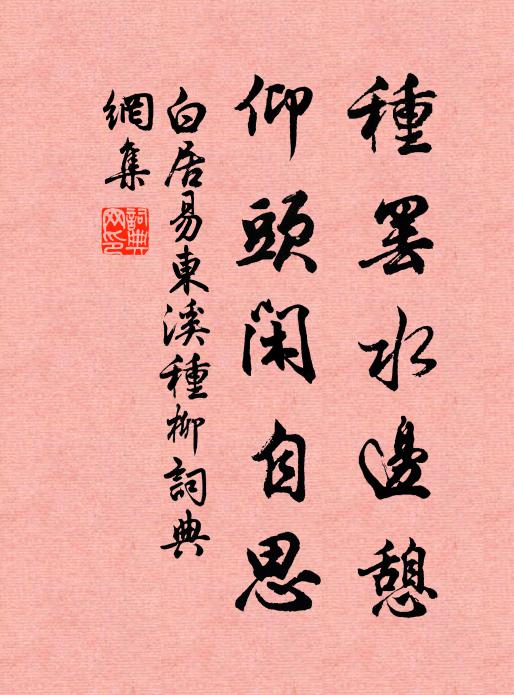 種罷水邊憩
仰頭閑自思
白居易東溪種柳詞典
網集
詞典網印